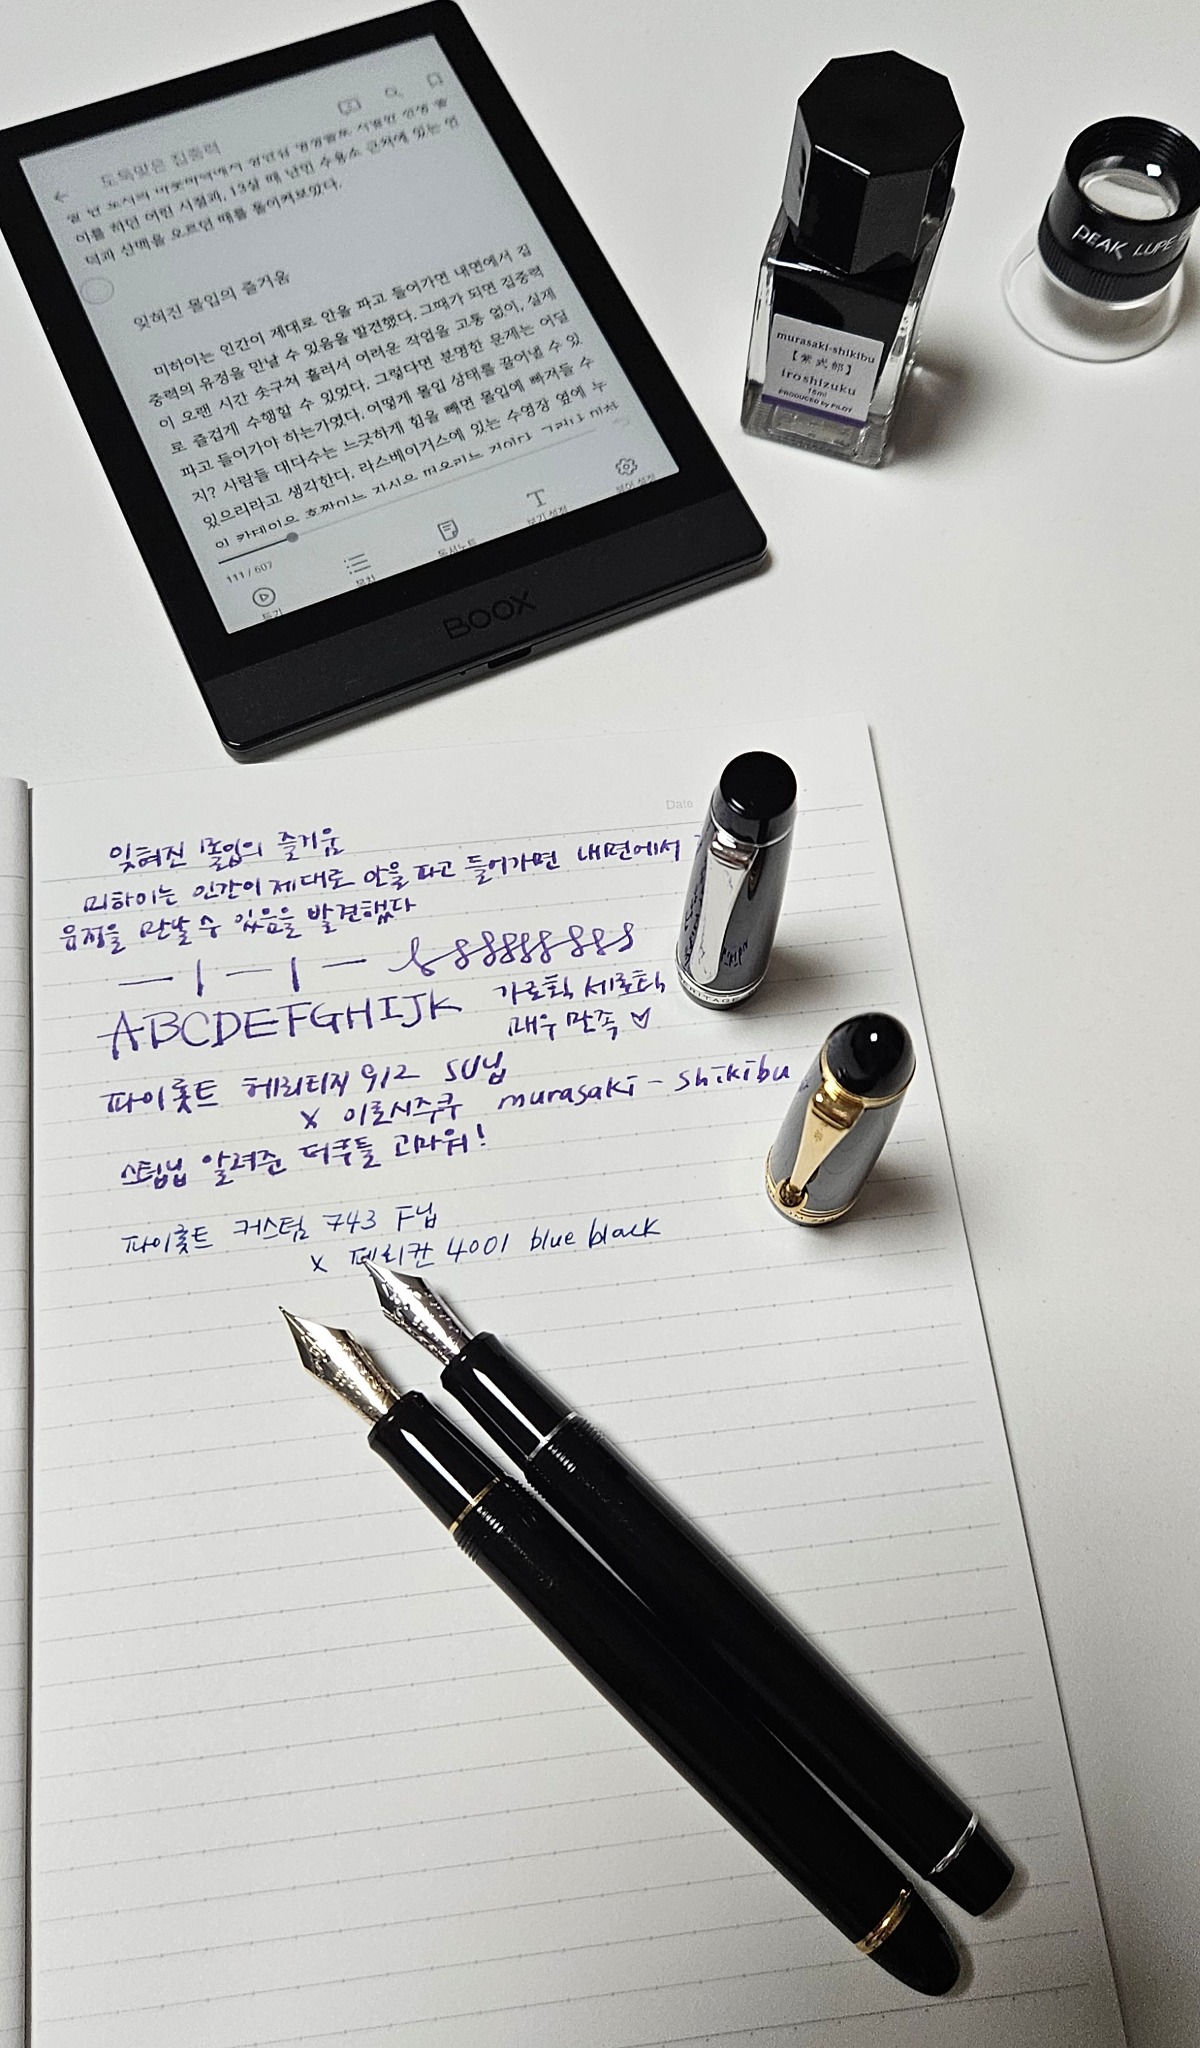 도둑맞은 집중력
이를 하던 어떤 시절과, 13살 때 남민 수용소 근처에 있는 언
덕과 산맥을 오르던 때를 돌이켜보았다.
잊혀진 몰입의 즐거움
미하이는 인간이 제대로 안을 파고 들어가면 내면에서 집
중력의 유정을 만날 수 있음을 발견했다. 그때가 되면 집중력
이 오랜 시간 솟구쳐 흘러서 어려운 작업을 고통 없이, 실제
로 즐겁게 수행할 수 있었다. 그렇다면 분명한 문제는 어딜
파고 들어가야 하는가였다. 어떻게 몰입 상태를 끌어낼 수 있
지? 사람들 대다수는 느긋하게 힘을 빼면 몰입에 빠져들 수
있으리라고 생각한다. 라스베이거스에 있는 수영장 옆에 누
111 / 607
듣기 목차 독서노트 보기 설정 뷰어 설정
BOOX
murasaki-shikibu
【紫式部】
iroshizuku
15ml
PRODUCED by PILOT
PEAK LUPE
Date
잊혀진 몰입의 즐거움
미하이는 인간이 제대로 안을 파고 들어가면 내면에서
유정을 만날 수 있음을 발견했다
ABCDEFGHIJK
가로획 세로획
매우 만족 ♡
파이롯트 헤리티지 912 SU닙
x 이로시주쿠 murasaki - shikibu
스텁닙 알려준 떠쿠들 고마워!
파이롯트 커스텀 743 F닙
x 펠리칸 4001 blue black